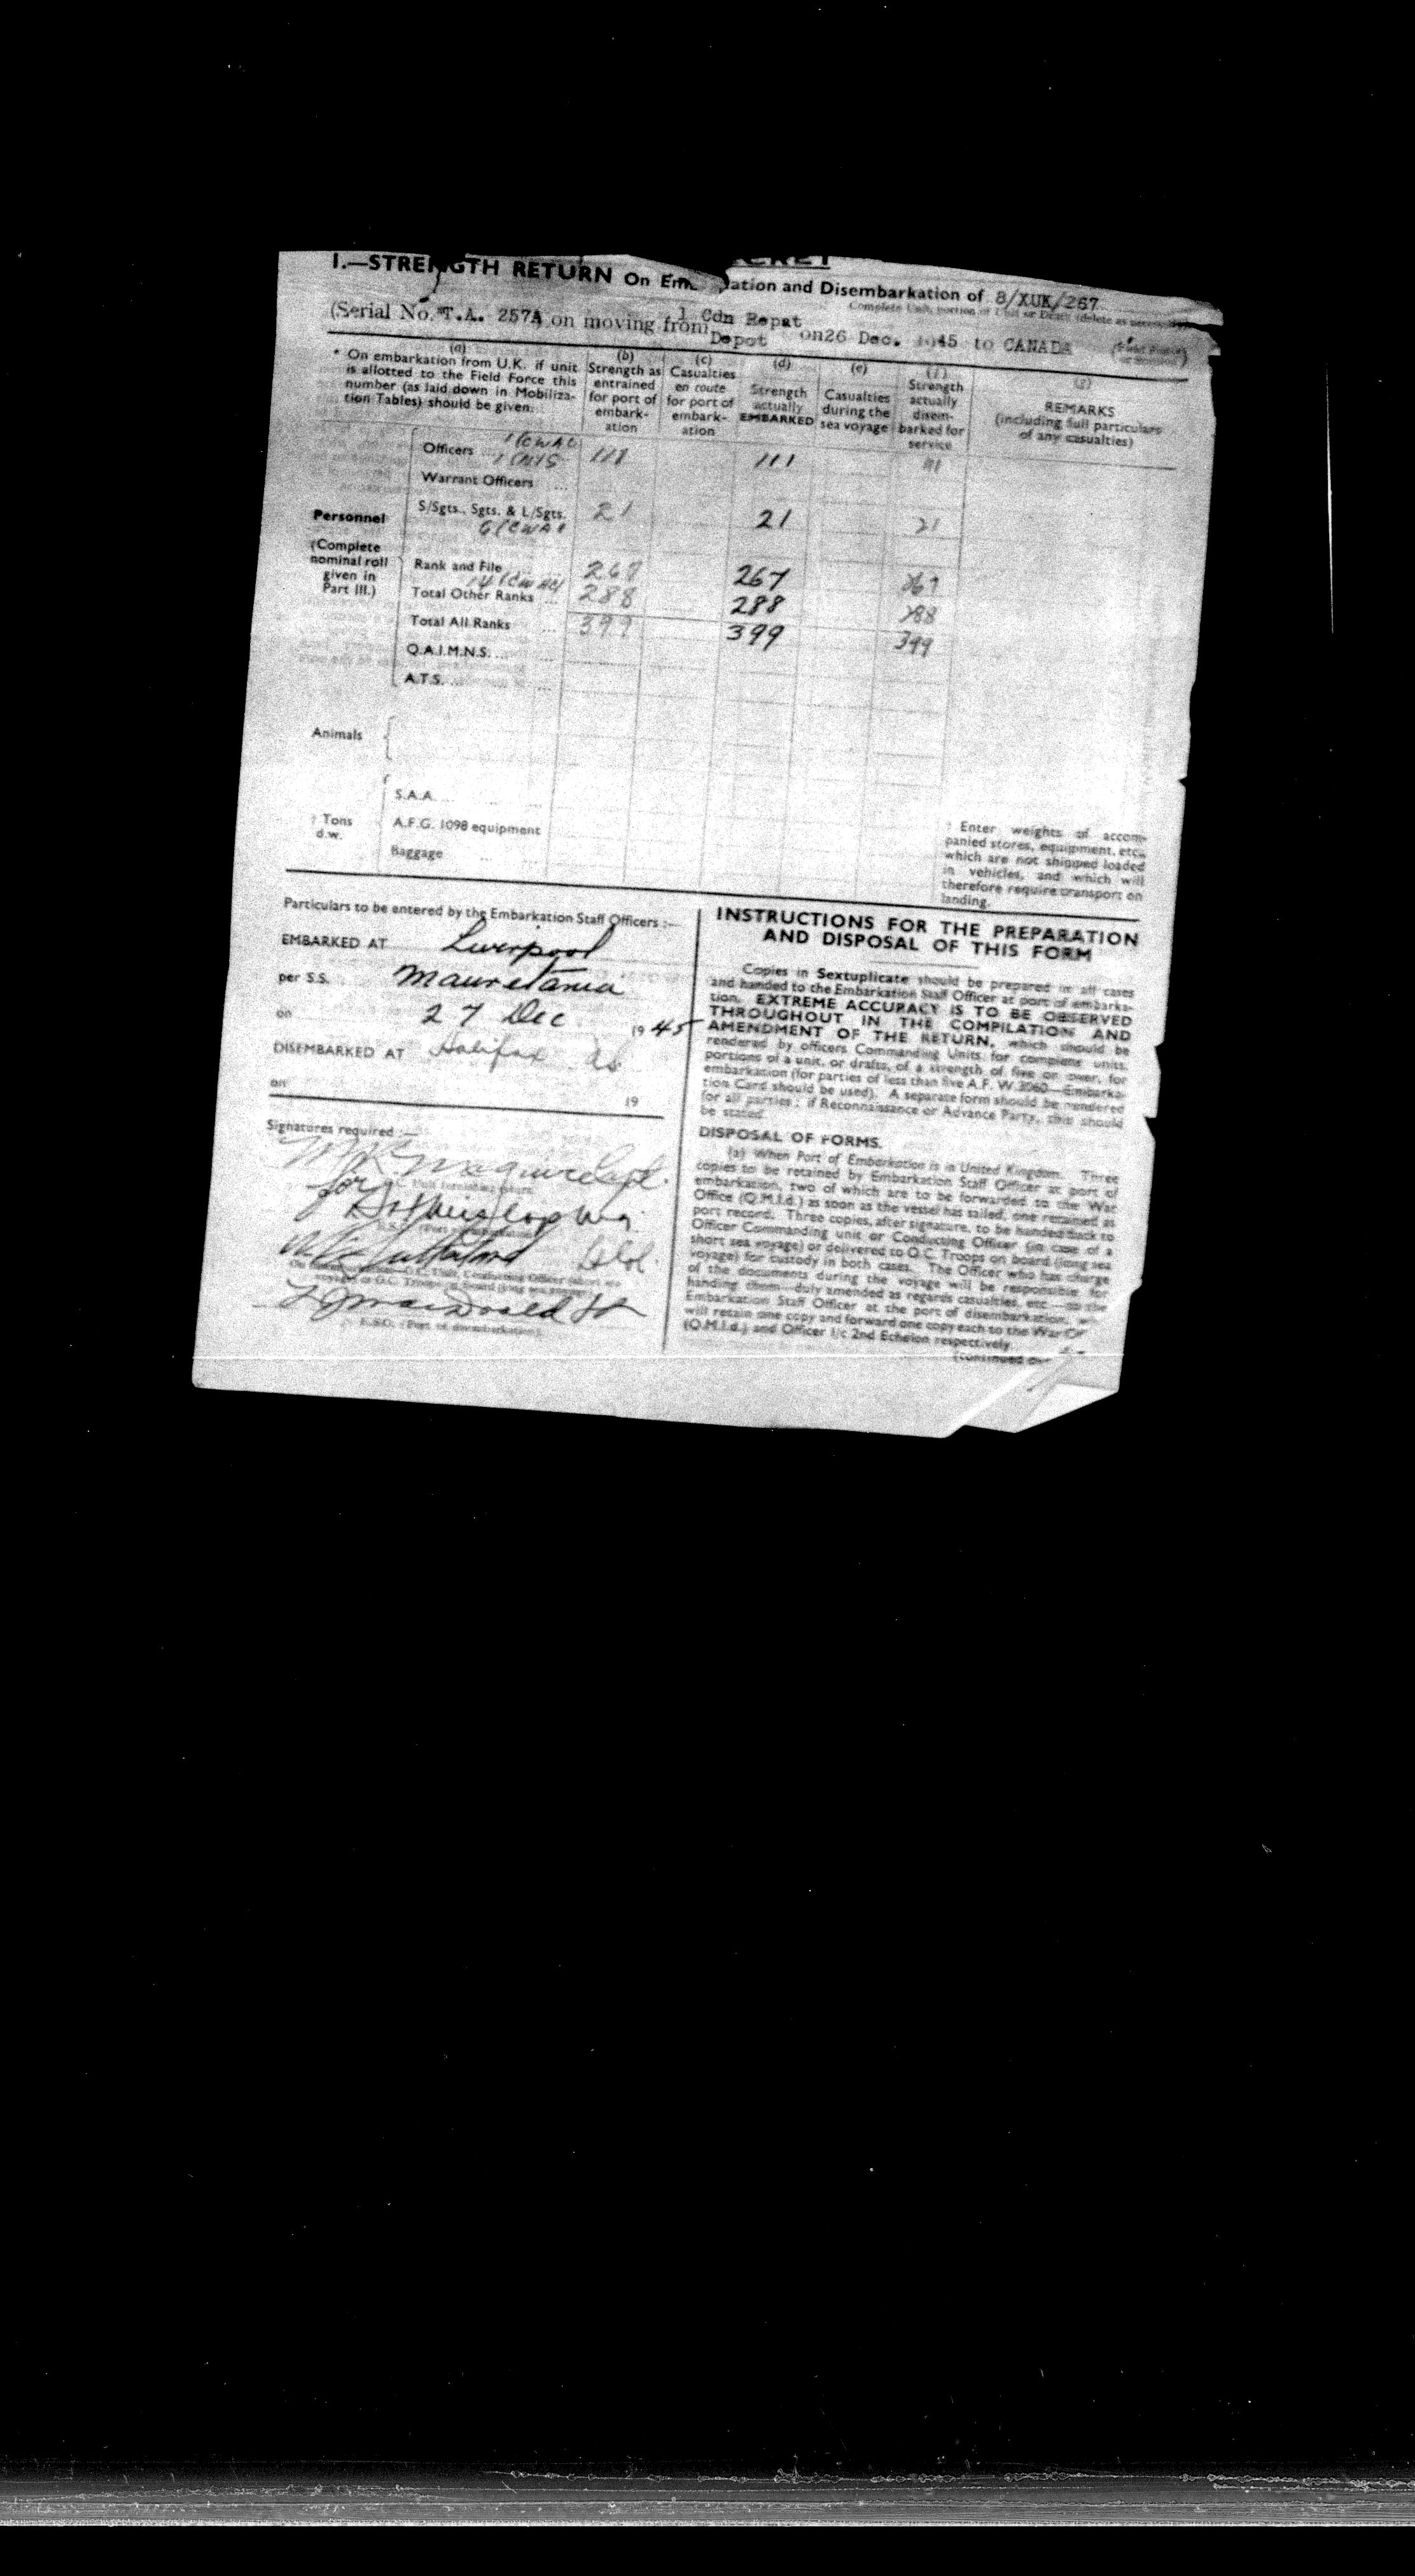 I.—STRENGTH RETURN On Em ation and Disembarkation of 8/XUK/267
Complete Unit, portion of Unit or Draft (delete as necessary)
(Serial No.*T.A. 257A on moving from 1 Cdn Repat Depot on 26 Dec. 1945 to CANADA
(a) (b) (c) (d) (e) (f) (g)
* On embarkation from U.K. if unit is allotted to the Field Force this number (as laid down in Mobilization Tables) should be given.
Strength as entrained for port of embark-ation
Casualties en route for port of embark-ation
Strength actually EMBARKED
Casualties during the sea voyage
Strength actually disem-barked for service
REMARKS (including full particulars of any casualties)
Personnel
(Complete nominal roll given in Part III.)
Officers ... 1 CWAC 111 111 111
Warrant Officers ...
S/Sgts., Sgts. & L/Sgts. 21 21 21
Rank and File 267 267 267
Total Other Ranks ... 288 288 288
Total All Ranks ... 399 399 399
Q.A.I.M.N.S. ...
A.T.S. ...
Animals
† Tons d.w.
S.A.A. ...
A.F.G. 1098 equipment
Baggage ...
† Enter weights of accom-
panied stores, equipment, etc.,
which are not shipped loaded
in vehicles, and which will
therefore require transport on
landing.
Particulars to be entered by the Embarkation Staff Officers :—
EMBARKED AT Liverpool
per S.S. Mauretania
on 27 Dec 1945
DISEMBARKED AT Halifax
on 19
Signatures required :—
Unit furnishing return
for
E.S.O. (Port of disembarkation).
INSTRUCTIONS FOR THE PREPARATION
AND DISPOSAL OF THIS FORM
Copies in Sextuplicate should be prepared in all cases
and handed to the Embarkation Staff Officer at port of embarka-
tion. EXTREME ACCURACY IS TO BE OBSERVED
THROUGHOUT IN THE COMPILATION AND
AMENDMENT OF THE RETURN, which should be
rendered by officers Commanding Units, for complete units,
portions of a unit, or drafts, of a strength of five or over, for
embarkation (for parties of less than five A.F. W.3060—Embarka-
tion Card should be used). A separate form should be rendered
for all parties ; if Reconnaissance or Advance Party, this should
be stated.
DISPOSAL OF FORMS.
(a) When Port of Embarkation is in United Kingdom. Three
copies to be retained by Embarkation Staff Officer at port of
embarkation, two of which are to be forwarded to the War
Office (Q.M.I.d.) as soon as the vessel has sailed, one retained as
port record. Three copies, after signature, to be handed back to
Officer Commanding unit or Conducting Officer (in case of a
short sea voyage) or delivered to O.C. Troops on board (long sea
voyage) for custody in both cases. The Officer who has charge
of the documents during the voyage will be responsible for
handing them—duly amended as regards casualties, etc.—to the
Embarkation Staff Officer at the port of disembarkation,
will retain one copy and forward one copy each to the War
(Q.M.I.d.) and Officer i/c 2nd Echelon respectively.
(continued